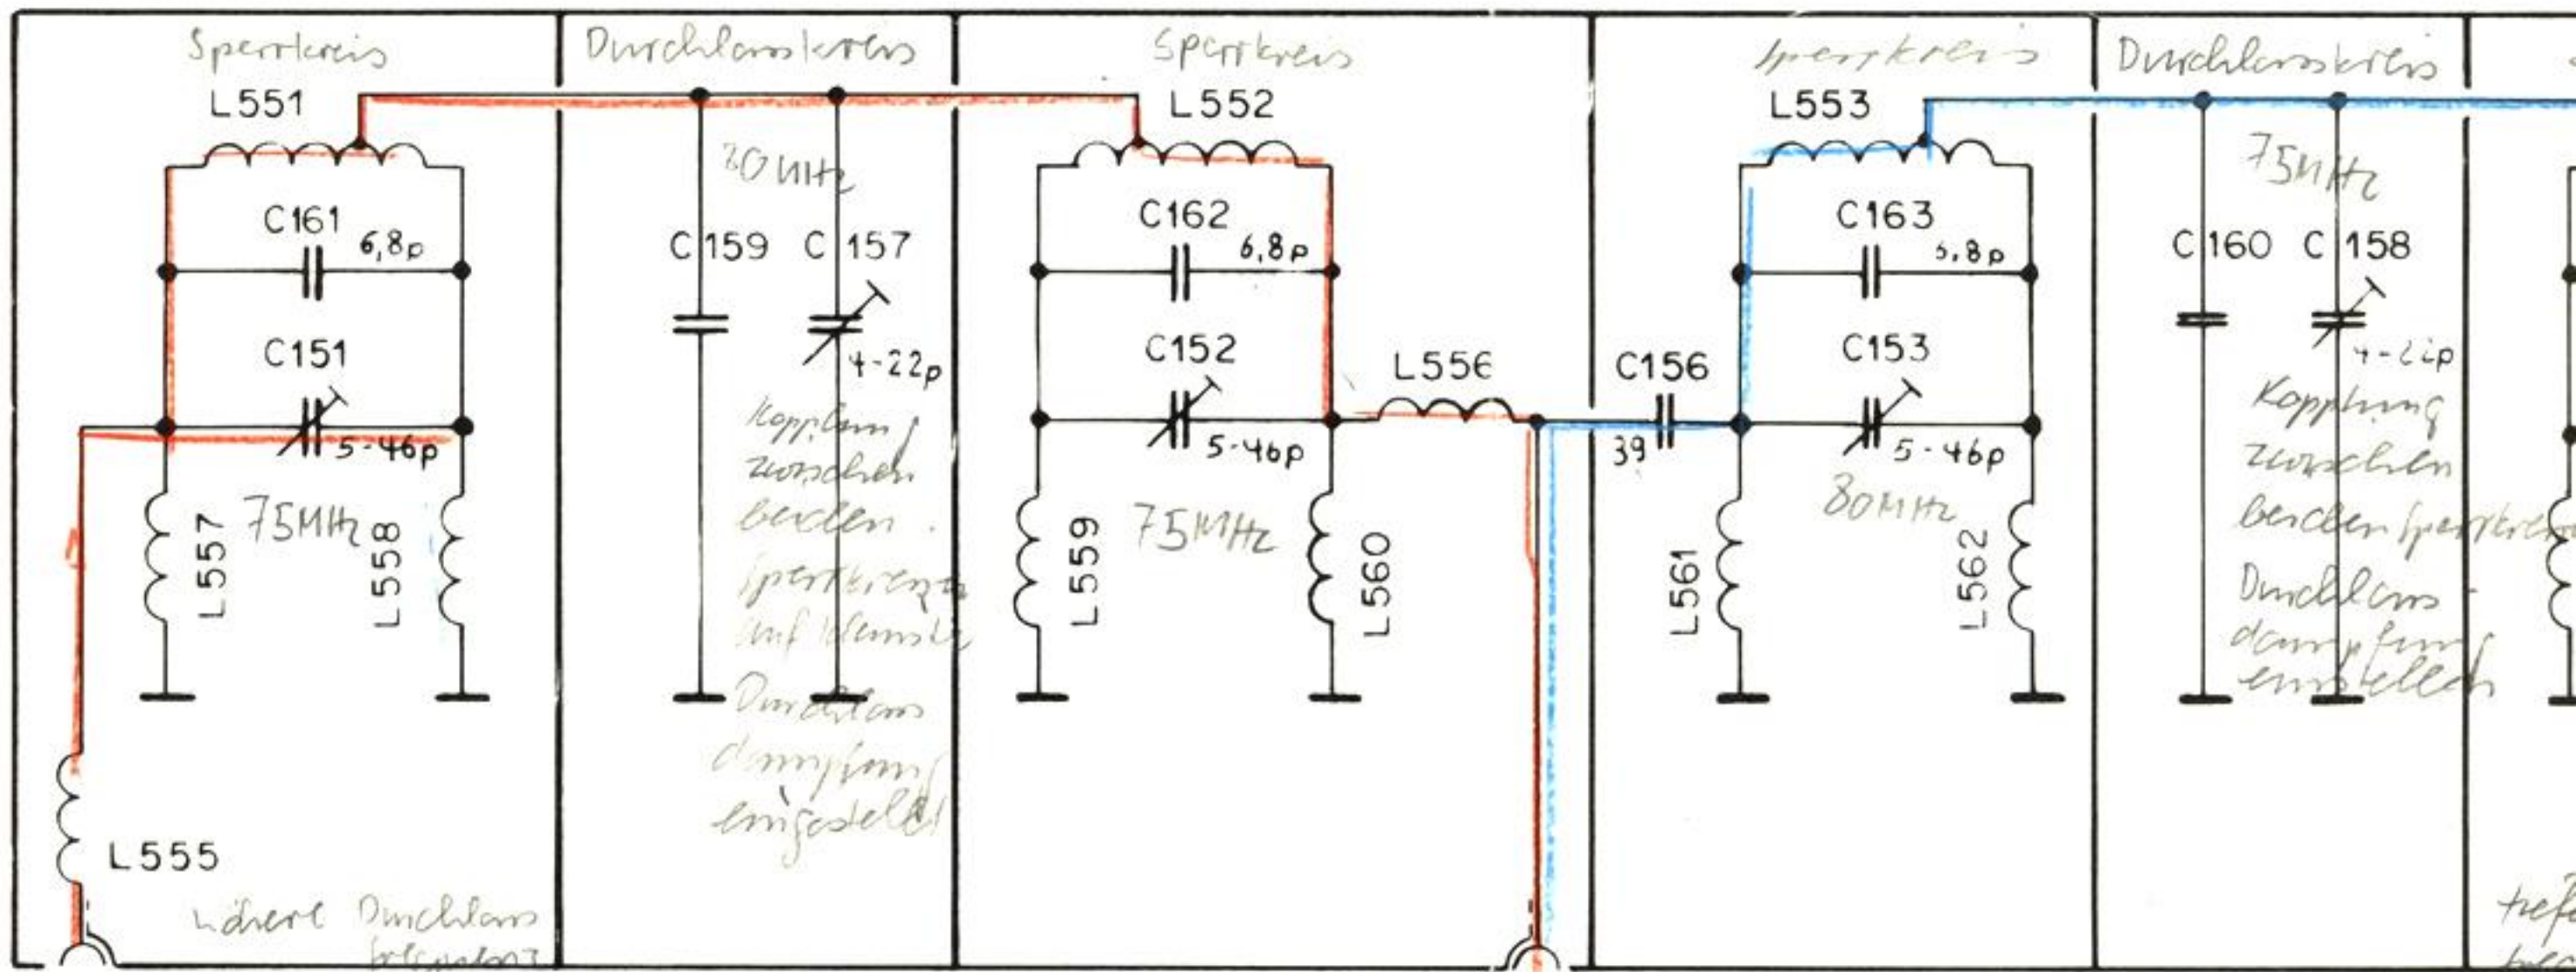 Sperrkreis
L551
C161
6,8p
C151
5-46p
75MHz
L557
L558
L555
höhere Durchlass
Durchlasskreis
80MHz
C159 C157
4-22p
Kopplung
zwischen
beiden
Sperrkreisen
auf kleinste
Durchlass
dämpfung
eingestellt
Sperrkreis
L552
C162
6,8p
C152
5-46p
75MHz
L559
L560
L556
Sperrkreis
L553
C163
6,8p
C156
39
C153
5-46p
80MHz
L561
L562
Durchlasskreis
75MHz
C160 C158
4-22p
Kopplung
zwischen
beiden Sperrkreisen
Durchlass-
dämpfung
einstellen